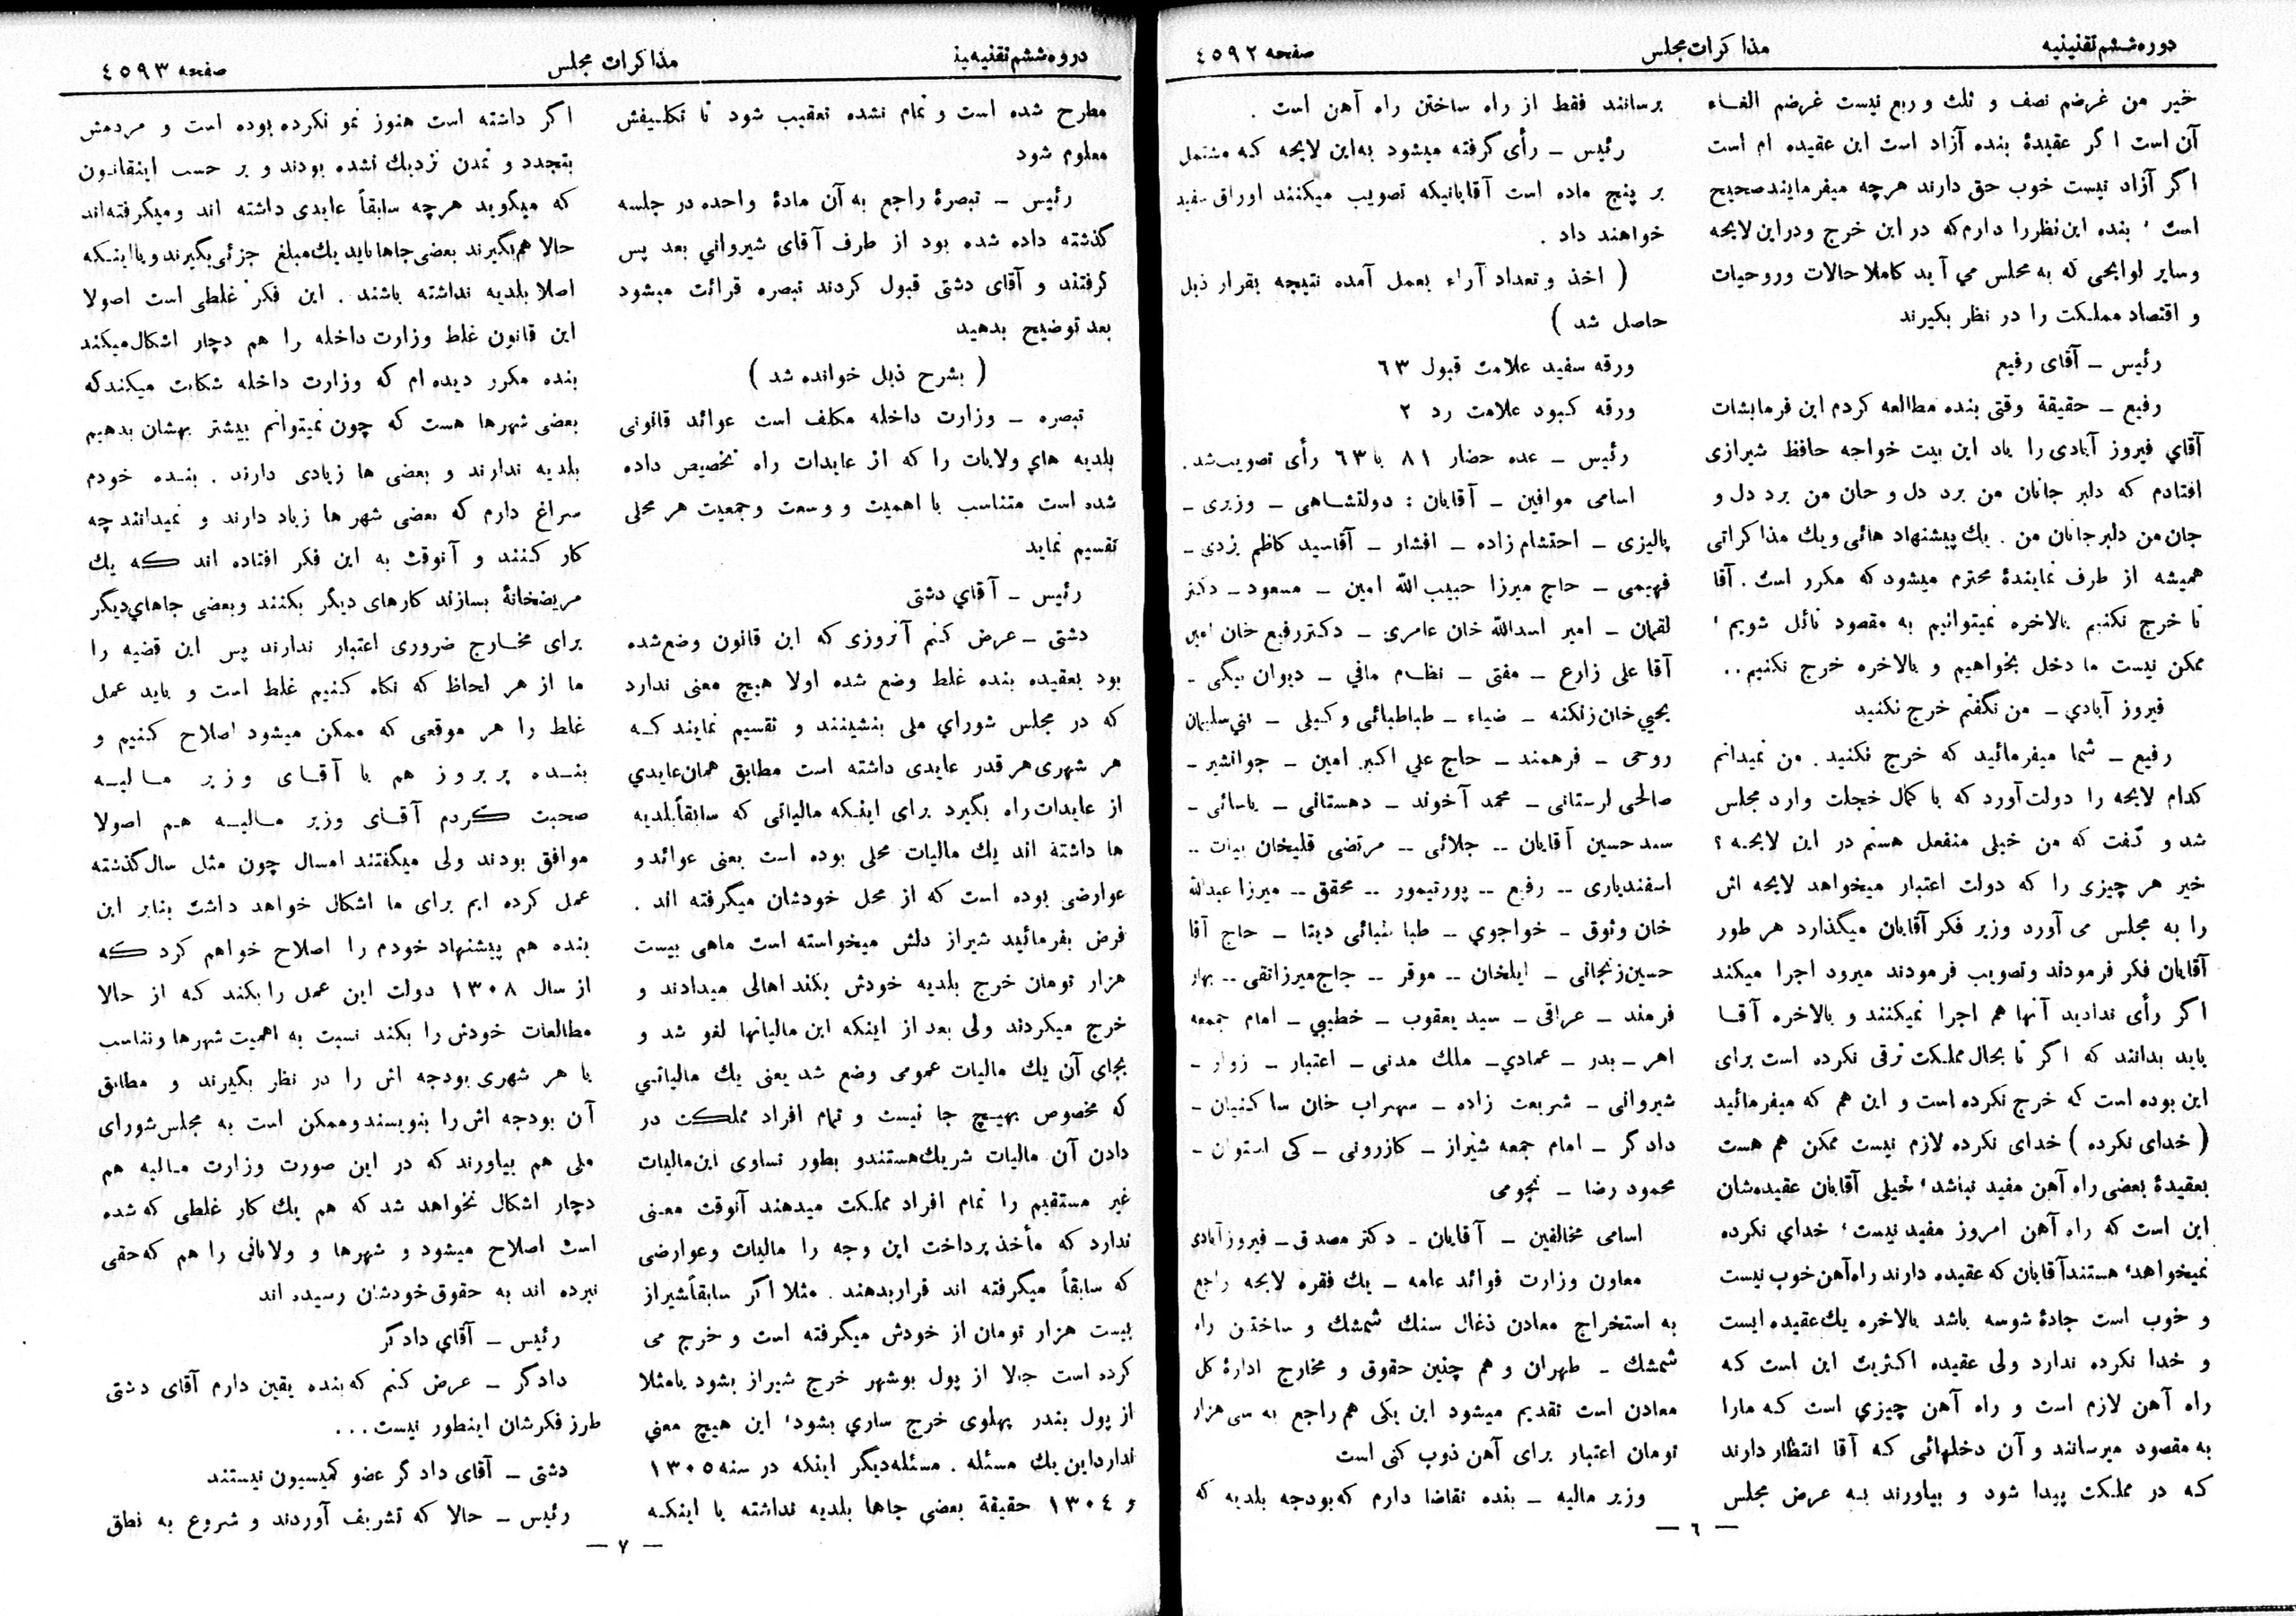 دوره ششم تقنینیه
مذاکرات مجلس
صفحه ٤٥٩٢
خیر من غرضم نصف و ثلث و ربع نیست غرضم الغاء
آن است اگر عقیدهٔ بنده آزاد است این عقیده ام است
اگر آزاد نیست خوب حق دارند هرچه میفرمایند صحیح
است، بنده این نظر را دارم که در این خرج و در این لایحه
و سایر لوایحی که به مجلس می آید کاملا حالات و روحیات
و اقتصاد مملکت را در نظر بگیرند
رئیس ـ آقای رفیع
رفیع ـ حقیقة وقتی بنده مطالعه کردم این فرمایشات
آقاي فیروز آبادی را یاد این بیت خواجه حافظ شیرازی
افتادم که دلبر جانان من برد دل و جان من برد دل و
جان من دلبر جانان من . یك پیشنهاد هائی و یك مذاکراتی
همیشه از طرف نمایندهٔ محترم میشود که مکرر است . آقا
تا خرج نکنیم بالاخره نمیتوانیم به مقصود نائل شویم،
ممکن نیست ما دخل بخواهیم و بالاخره خرج نکنیم ..
فیروز آبادي ـ من نگفتم خرج نکنید
رفیع ـ شما میفرمائید که خرج نکنید . من نمیدانم
کدام لایحه را دولت آورد که با کمال خجلت وارد مجلس
شد و گفت که من خیلی منفعل هستم در این لایحه ؟
خیر هر چیزی را که دولت اعتبار میخواهد لایحه اش
را به مجلس می آورد وزیر فکر آقایان میگذارد هر طور
آقایان فکر فرمودند و تصویب فرمودند میرود اجرا میکند
اگر رأی ندادید آنها هم اجرا نمیکنند و بالاخره آقا
باید بدانند که اگر تا بحال مملکت ترقی نکرده است برای
این بوده است که خرج نکرده است و این هم که میفرمائید
( خدای نکرده ) خدای نکرده لازم نیست ممکن هم هست
بعقیدهٔ بعضی راه آهن مفید نباشد، خیلی آقایان عقیده‌شان
این است که راه آهن امروز مفید نیست، خداي نکرده
نمیخواهد، هستند آقایان که عقیده دارند راه آهن خوب نیست
و خوب است جادهٔ شوسه باشد بالاخره یك عقیده ایست
و خدا نکرده ندارد ولی عقیده اکثریت این است که
راه آهن لازم است و راه آهن چیزي است که مارا
به مقصود میرسانند و آن دخلهائی که آقا انتظار دارند
که در مملکت پیدا شود و بیاورند به عرض مجلس
برسانند فقط از راه ساختن راه آهن است .
رئیس ـ رأی گرفته میشود به این لایحه که مشتمل
بر پنج ماده است آقایانیکه تصویب میکنند اوراق سفید
خواهند داد .
( اخذ و تعداد آراء بعمل آمده نتیجه بقرار ذیل
حاصل شد )
ورقه سفید علامت قبول ٦٣
ورقه کبود علامت رد ٢
رئیس ـ عده حضار ٨١ با ٦٣ رأی تصویب شد .
اسامی موافین ـ آقایان : دولتشاهی ـ وزیری ـ
پالیزی ـ احتشام زاده ـ افشار ـ آقاسید کاظم یزدی ـ
فهیمی ـ حاج میرزا حبیب الله امین ـ مسعود ـ دکتر
لقمان ـ امیر اسدالله خان عامری ـ دکتر رفیع خان امین
آقا علی زارع ـ مفتی ـ نظام مافي ـ دیوان بیگی ـ
یحیي خان زنگنه ـ ضیاء ـ طباطبائی وکیلی ـ نی سلیمان
روحی ـ فرهمند ـ حاج علي اکبر امین ـ جوانشیر ـ
صالحی لرستانی ـ محمد آخوند ـ دهستانی ـ یاسائی ـ
سید حسین آقایان ـ جلائی ـ مرتضی قلیخان بیات ـ
اسفندیاری ـ رفیع ـ پورتیمور ـ محقق ـ میرزا عبدالله
خان وثوق ـ خواجوي ـ طباطبائی دیبا ـ حاج آقا
حسین زنجانی ـ ایلخان ـ موقر ـ حاج میرزا تقی ـ بهار
فرمند ـ عراقی ـ سید یعقوب ـ خطیبي ـ امام جمعه
اهر ـ بدر ـ عمادي ـ ملك مدنی ـ اعتبار ـ زوار ـ
شیروانی ـ شریعت زاده ـ سهراب خان ساکنیان ـ
دادگر ـ امام جمعه شیراز ـ کازرونی ـ کی استوان ـ
محمود رضا ـ نجومی
اسامی مخالفین ـ آقایان ـ دکتر مصدق ـ فیروزآبادی
معاون وزارت فوائد عامه ـ یك فقره لایحه راجع
به استخراج معادن ذغال سنك شمشك و ساختن راه
شمشك ـ طهران و هم چنین حقوق و مخارج ادارهٔ کل
معادن است تقدیم میشود این یکی هم راجع به سی هزار
تومان اعتبار برای آهن ذوب کنی است
وزیر مالیه ـ بنده تقاضا دارم که بودجه بلدیه که
ـ ٦ ـ
دروه ششم تقنیه ینه
مذاکرات مجلس
صفحه ٤٥٩٣
مطرح شده است و تمام نشده تعقیب شود تا تکلیفش
معلوم شود
رئیس ـ تبصرهٔ راجع به آن مادهٔ واحده در جلسه
گذشته داده شده بود از طرف آقای شیرواني بعد پس
گرفتند و آقای دشتی قبول کردند تبصره قرائت میشود
بعد توضیح بدهید
( بشرح ذیل خوانده شد )
تبصره ـ وزارت داخله مکلف است عوائد قانونی
بلدیه هاي ولایات را که از عایدات راه تخصیص داده
شده است متناسب با اهمیت و وسعت و جمعیت هر محلی
تقسیم نماید
رئیس ـ آقاي دشتی
دشتی ـ عرض کنم آنروزی که این قانون وضع شده
بود بعقیده بنده غلط وضع شده اولا هیچ معنی ندارد
که در مجلس شوراي ملی بنشینند و تقسیم نمایند که
هر شهری هر قدر عایدی داشته است مطابق همان عایدي
از عایدات راه بگیرد برای اینکه مالیاتی که سابقاً بلدیه
ها داشته اند یك مالیات محلی بوده است یعنی عوائد و
عوارضی بوده است که از محل خودشان میگرفته اند .
فرض بفرمائید شیراز دلش میخواسته است ماهی بیست
هزار تومان خرج بلدیه خودش بکند اهالی میدادند و
خرج میکردند ولی بعد از اینکه این مالیاتها لغو شد و
بجای آن یك مالیات عمومی وضع شد یعنی یك مالیاتي
که مخصوص بهیچ جا نیست و تمام افراد مملکت در
دادن آن مالیات شریك هستند و بطور تساوی این مالیات
غیر مستقیم را تمام افراد مملکت میدهند آنوقت معنی
ندارد که مأخذ پرداخت این وجه را مالیات و عوارضی
که سابقاً میگرفته اند قرار بدهند . مثلا اگر سابقاً شیراز
بیست هزار تومان از خودش میگرفته است و خرج می
کرده است حالا از پول بوشهر خرج شیراز بشود یا مثلا
از پول بندر پهلوی خرج ساري بشود، این هیچ معني
ندارد این یك مسئله . مسئله دیگر اینکه در سنه ١٣٠٥
و ١٣٠٤ حقیقة بعضی جاها بلدیه نداشته یا اینکه
اگر داشته است هنوز نمو نکرده بوده است و مردمش
بتجدد و تمدن نزدیك نشده بودند و بر حسب اینقانون
که میگوید هرچه سابقاً عایدی داشته اند و میگرفته‌اند
حالا هم بگیرند بعضی جاها باید یك مبلغ جزئی بگیرند و یا اینکه
اصلا بلدیه نداشته باشند . این فکر غلطی است اصولا
این قانون غلط وزارت داخله را هم دچار اشکال میکند
بنده مکرر دیده ام که وزارت داخله شکایت میکند که
بعضی شهرها هست که چون نمیتوانم بیشتر بهشان بدهیم
بلدیه ندارند و بعضی ها زیادی دارند . بنده خودم
سراغ دارم که بعضی شهر ها زیاد دارند و نمیدانند چه
کار کنند و آنوقت به این فکر افتاده اند که یك
مریضخانهٔ بسازند کارهای دیگر بکنند و بعضی جاهاي دیگر
برای مخارج ضروری اعتبار ندارند پس این قضیه را
ما از هر لحاظ که نگاه کنیم غلط است و باید عمل
غلط را هر موقعی که ممکن میشود اصلاح کنیم و
بنده پریروز هم با آقای وزیر مالیه
صحبت کردم آقای وزیر مالیه هم اصولا
موافق بودند ولی میگفتند امسال چون مثل سال گذشته
عمل کرده ایم برای ما اشکال خواهد داشت بنابر این
بنده هم پیشنهاد خودم را اصلاح خواهم کرد که
از سال ١٣٠٨ دولت این عمل را بکند که از حالا
مطالعات خودش را بکند نسبت به اهمیت شهرها و تناسب
با هر شهری بودجه اش را در نظر بگیرند و مطابق
آن بودجه اش را بنویسند و ممکن است به مجلس شورای
ملی هم بیاورند که در این صورت وزارت مالیه هم
دچار اشکال نخواهد شد که هم یك کار غلطی که شده
است اصلاح میشود و شهرها و ولایاتی را هم که حقی
نبرده اند به حقوق خودشان رسیده اند
رئیس ـ آقاي دادگر
دادگر ـ عرض کنم که بنده یقین دارم آقای دشتی
طرز فکرشان اینطور نیست ...
دشتی ـ آقای دادگر عضو کمیسیون نیستند
رئیس ـ حالا که تشریف آوردند و شروع به نطق
ـ ٧ ـ